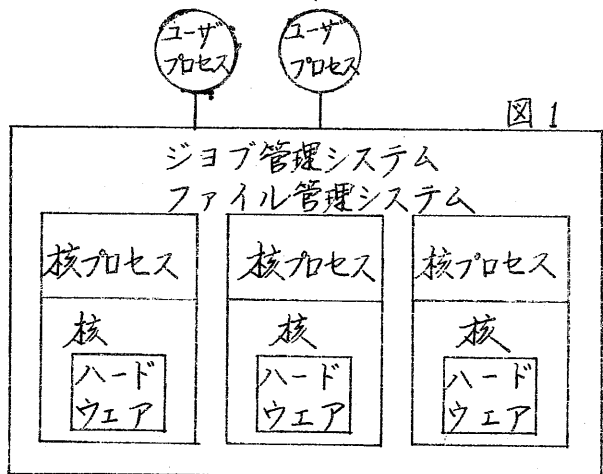 ユーザ
プロセス
ユーザ
プロセス
図1
ジョブ管理システム
ファイル管理システム
核プロセス
核プロセス
核プロセス
核
ハード
ウェア
核
ハード
ウェア
核
ハード
ウェア